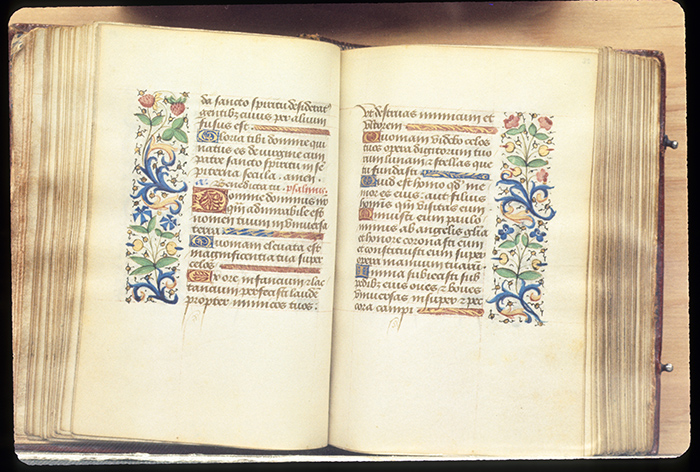 da sancto spiritu desiderat
gentibz cuius per aluum
fusus est.
Gloria tibi domine qui
natus es de virgine cum
patre sancto spiritu in se
piterna secula. amen.
Benedicta tu. psalmus.
Domine dominus no
qm admirabile est
nomen tuum in vniuersa
terra
Quoniam eleuata est
magnificentia tua super
celos
Ex ore infancium z lac
tancium perfecisti laude
propter inimicos tuos:
vt destruas inimicum et
vltorem
Quoniam videbo celos
tuos opera digitorum tuo
cum lunam z stellas que
tu fundasti
Quid est homo qd me
mor es eius aut filius
hominis qm visitas eum
Minuisti eum paulo
minus ab angelis glia
et honore coronasti eum
et constituisti eum super
opera manuum tuarum
Omnia subiecisti sub
pedibz eius oues z boues
vniuersas insuper z pec
cora campi